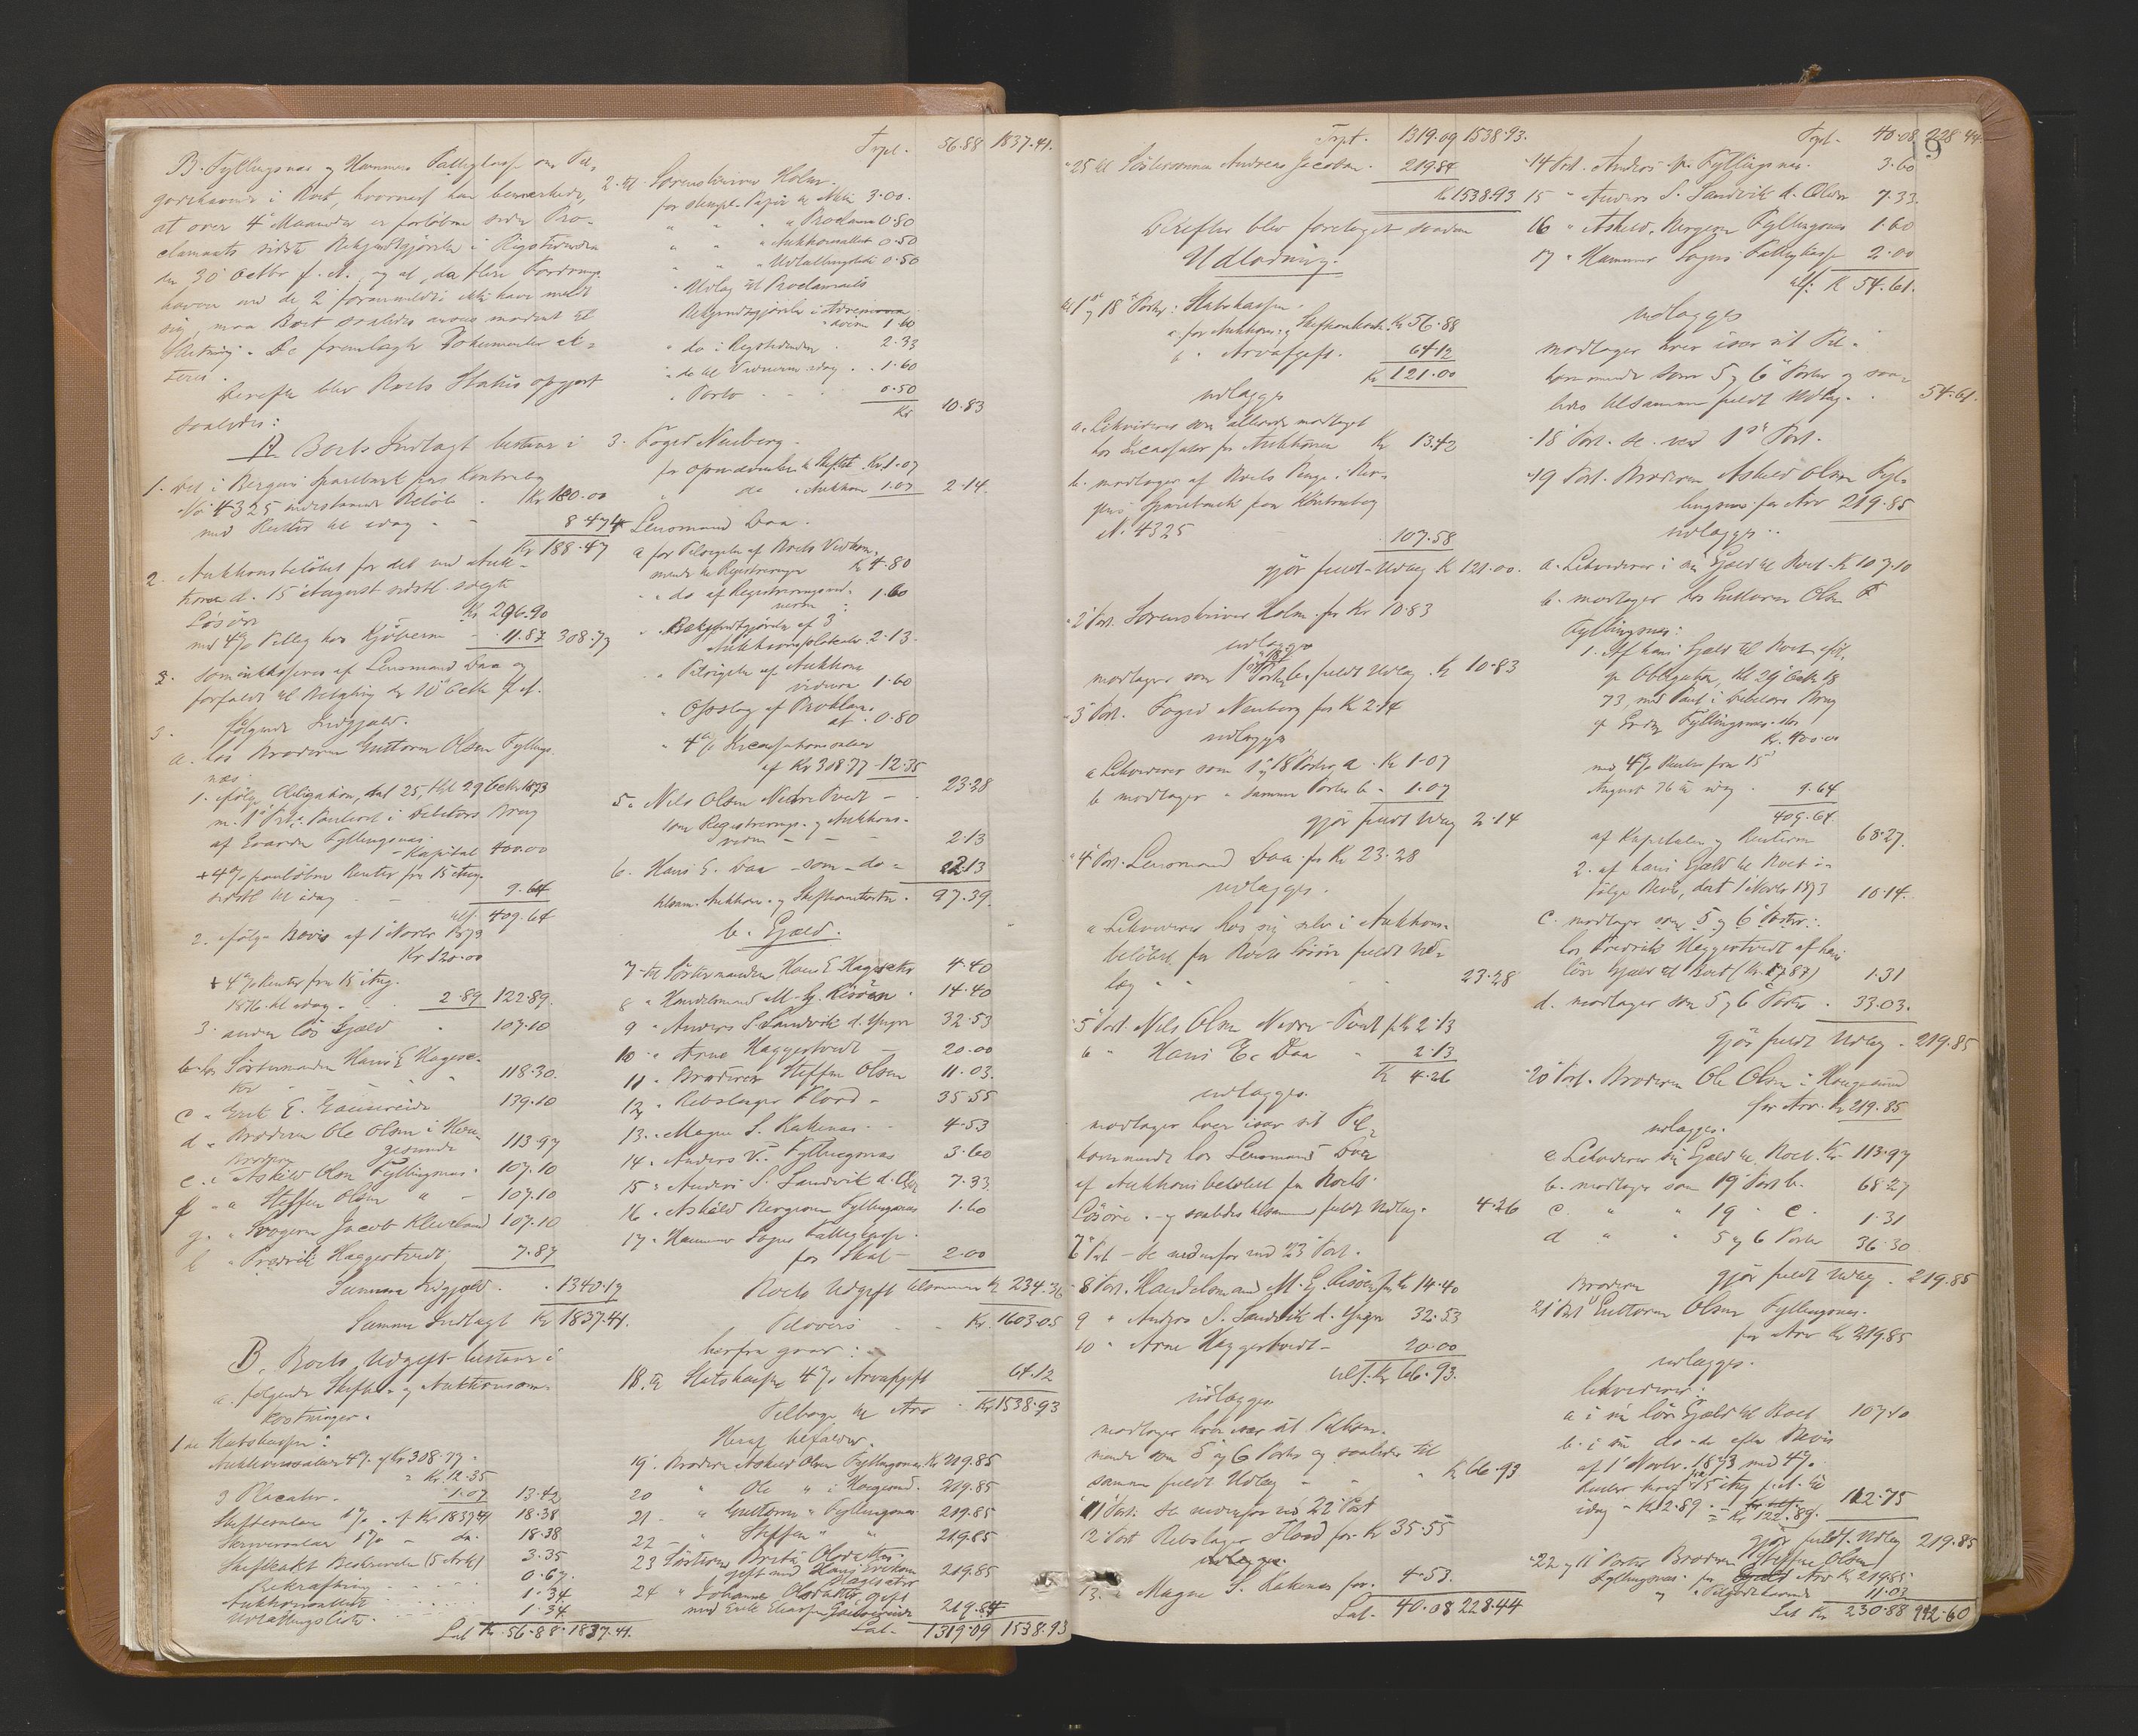 B. Fyllingsnæs og Hammers Fattigkasse om Til-
godehavende i Boet, hvorved han bemærkede,
at over 4 Maaneder er forløbne siden Pro-
clamaets sidste Bekjendtgjørelse i Rigstidenden
den 30 Octbr f. A., og at, da flere Fordrings-
havere end de 2 foranmeldte ikke have meldt
sig, maa Boet saaledes ansees modent til
Slutning. De fremlagte Dokumenter ak-
teres.
Derefter blev Boets Status opgjort
saaledes:
A. Boets Indtægt bestaar i
1. Det i Bergens Sparebank paa Kontrabog
No. 4325 indestaaende Beløb Kr. 180.00
med Renter til idag - - 8.47
Kr 188.47
2. Auktionsbeløbet for det ved Auk-
tionen d. 15 August sidstl. solgte
Løsøre Kr 296.90
med 4% Tillæg hos Kjøberne - 11.87 308.77
som inkasseres af Lensmand Daa og
forfaldt til Betaling den 10 Octbr f. A.
3. følgende Indgjæld.
a. hos Broderen Guttorm Olsen Fyllings-
næs.
1. ifølge Obligation, dat 25, thl 29 Octbr 1873
m. 1ste Prt. Panteret i Debitors Brug
af Gaarden Fyllingsnæs
- Kapital 400.00
+ 4% paaløbne Renter fra 15 Aug.
sidstl til idag - 9.64
tils. 409.64
2. ifølge Bevis af 1 Novbr 1873
Kr 120.00
+ 4% Renter fra 15 Aug.
1876 til idag - 2.89 122.89.
3. anden løs Gjæld " 107.10
b. hos Søstermanden Hans E Hagesæ-
ter 118.30.
c " Erik E. 139.10
d " Broderen Ole Olsen i Hau-
gesund 113.97
e " Broderen Askild Olsen Fyllingsnæs 107.10
f " " Steffen Olsen " - 107.10
g. " Svogeren Jacob Kleiveland 107.10
h " Fredrik Haggertveit 7.87
Summa Indgjæld - 1340.17
Summa Indtægt Kr 1837.41.
B. Boets Udgift bestaar i
a. følgende Skifte- og Auktionsom-
kostninger.
1 til Statskassen:
Auktionssalær 4% af Kr 308.77 -
= Kr. 12.35
3 Placater - 1.07 13.42
Skiftesalær 1% - af Kr 1837.41 18.38
Skriversalær 1% - do. 18.38
Skifteakt Beskrivelse (5 Ark) 3.35
Bekræftning 0.67.
Auktionsallmt 1.34
Udlodningsliste 1.34
Lat. Kr. 56.88. 1837.41.
Trpt. 56.88 1837.41.
2. til Sorenskriver Holm.
for stemp. Papir til Akten 3.00.
" " " " Proclama 0.50
" " " Auktionsallmt 0.50
" " " Udlodningsliste 0.50
" Udlæg til Proclamaets
Bekjendtgjørelse i
1.60
" do i Rigstidenden 2.33
" do til Vidnerne idag 1.60
" Porto 0.50
Kr 10.83
3. Foged Neuberg.
for Opnævnelse til Skiftet Kr. 1.07
" do " Auktion 1.07 2.14.
4. Lensmand Daa.
a for Tilsigelse af Boets Vedkom-
mende til Registreringen Kr 4.80
" do af Registreringsvid-
nerne - 1.60
" Bekjendtgjørelse af 3
Auktionsplakater 2.13.
" Tilsigelse af Auktions-
vidnerne 1.60
" Opslag af Proklam-
at - 0.80
" 4% Incassationssalær
af Kr 308.77 - 12.35
23.28
5. Nils Olsen Nedre Tvedt -
som Registrerings- og Auktions-
vidne - - 2.13
6. Hans E. Daa - som - do - 2.13
tilsam. Auktions- og Skifteomkostn. 97.39.
b. Gjæld.
7 til Søstermanden Hans E Hagesæter 4.40
8 " Handelsmand M. G. Risøen 14.40
9 " Anders S. Sandvik d. Yngre 32.53
10 " Arne Haggertveit - 20.00
11. " Broderen Steffen Olsen 11.03.
12 " Rebslager Flood - 35.55
13. " Magne S. Kakenæs - - 4.53
14. " Anders Fyllingsnæs 3.60
15 " Anders S. Sandvik d. Æ 7.33
16 " Askild Bergeson Fyllingsnæs 1.60
17 " Hammers Sogns Fattigkasse
for Skat - 2.00
Boets Udgift tilsammen Kr 234.36
Tilovers - - Kr. 1603.05
herfra gaar:
18. til Statskassen 4% Arveafgift 64.12
Tilbage til Arv Kr 1538.93
Heraf tilfalder.
19. Broderen Askild Olsen Fyllingsnæs Kr 219.85
20 " Ole " i Haugesund. 219.85
21 - " Guttorm " Fyllingsnæs 219.85
22 - " Steffen " " 219.85
23 Søsteren Brita Olsdatter.
gift med Hans Eriksen
Hagesæter 219.85
24 " Johanne Olsdatter, gift
med Erik 219.84
Lat. 1319.09 1538.93
Trpt. 1319.09 1538.93.
25 til Søstersønnen Andreas Jacobsen. 219.84
Kr 1538.93
Derefter blev foretaget saadan
Udlodning.
til 1ste og 18 Poster: Statskassen.
a. for Auktions- og Skifteomkostn. Kr 56.88
b " Arveafgift. 64.12
Kr 121.00
udlægges
a. Likviderer som allerede modtaget
hos Incassator for Auktionen Kr 13.42
b. modtager af Boets Penge i Ber-
gens Sparebank paa Kontrabog
No. 4325 107.58
gjør fuldt Udlæg Kr 121.00.
2 Post. Sorenskriver Holm for Kr 10.83
udlægges
modtager som 1ste og 18 Poster b. fuldt Udlæg. Kr 10.83
3 Post. Foged Neuberg for Kr 2.14
udlægges
a Likviderer som 1 og 18 Poster a. Kr 1.07
b modtager " samme Poster b - 1.07
gjør fuldt Udlæg 2.14
4 Post. Lensmand Daa for Kr 23.28
udlægges.
a Likviderer hos sig selv i Auktions-
beløbet for Boets Løsøre fuldt Ud-
læg " " 23.28
5 Post. Nils Olsen Nedre-Tvedt f. Kr 2.13
6 " Hans E. Daa " 2.13
Kr 4.26
udlægges.
modtager hver især sit Til-
kommende hos Lensmand Daa
af Auktionsbeløbet for Boets
Løsøre. - og saaledes tilsammen fuldt Udlæg. 4.26
7 Post - se nedenfor ved 23 Post.
8 Post. Handelsmand M. G. Risøen for Kr 14.40
9 " Anders S. Sandvik d. Yngre 32.53
10 " Arne Haggertveit - 20.00
tils. Kr 66.93.
udlægges
modtager hver især sit Tilkom-
mende som 5 og 6 Poster og saaledes til-
sammen fuldt Udlæg - " Kr 66.93
11 Post: se nedenfor ved 22 Post
12 Post Rebslager Flood for Kr 35.55
udlægges.
13. " Magne S. Kakenæs for 4.53.
Lat. 40.08 228.44
Trpt. 40.08 228.44.
9
14 Post. Anders Fyllingsnæs. 3.60
15 " Anders S. Sandvik d. Ældre 7.33.
16 " Askild Bergeson Fyllingsnæs 1.60
17 " Hammers Sogns Fattigkasse 2.00
tils. Kr 54.61.
udlægges
modtager hver især sit Til-
kommende som 5 og 6 Poster og saa-
ledes tilsammen fuldt Udlæg. 54.61.
18 Post. se ved 1ste Post.
19 Post. Broderen Askild Olsen Fyl-
lingsnæs for Arv 219.85
udlægges.
a. Likviderer i sin Gjæld til Boet - Kr 107.10
b. modtager hos Guttorm Olsen
Fyllingsnæs:
1. Af hans Gjæld til Boet iføl-
ge Obligation, thl 29 Octbr 18
73, med Pant i Debitors Brug
af Gaarden Fyllingsnæs
Kr. 400.00
med 4% Renter fra 15
August 76 til idag - 9.64
409.64
af Kapitalen og Renterne 68.27.
2. af hans Gjæld til Boet i-
følge Bevis, dat 1 Novbr 1873 10.14.
c. modtager som 5 og 6 Poster:
hos Fredrik Haggertveit af hans
løse Gjæld til Boet (Kr. 7.87) 1.31
d. modtager som 5 og 6 Poster 33.03.
gjør fuldt Udlæg - 219.85
20 Post. Broderen Ole Olsen i Haugesund
for Arv. Kr 219.85
udlægges.
a Likviderer sin Gjæld til Boet. Kr 113.97
b. modtager som 19 Post b. 68.27
c. " " 19 " c. 1.31
d " " 5 og 6 Poster 36.30
gjør fuldt Udlæg - 219.85
21 Post Broderen Guttorm Olsen Fyllingsnæs.
for Arv Kr 219.85
udlægges.
likviderer:
a i sin løse Gjæld til Boet 107.10
b. i sin do - do efter Bevis
af 1 Novbr. 1873 med 4%
Renter fra 15 Aug f. A. til
idag - Kr 2.89 - = Kr 122.89. 112.75
gjør fuldt Udlæg 219.85
22 og 11 Poster Broderen Steffen Olsen
Fyllingsnæs for Arv Kr 219.85
" " Tilgodehavende 11.03
Lat Kr 230.88 992.60